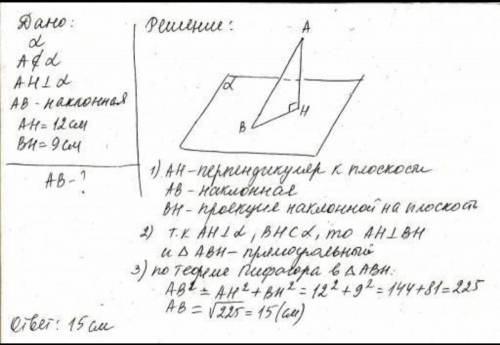 Дано:
α
A∉α
AH⊥α
AB-наклонная
AH=12см
BH=9см
AB-?
Решение:
A
α
B
H
1) AH-перпендикуляр к плоскости
AB-наклонная
BH-проекция наклонной на плоскость
2) т.к AH⊥α, BH⊂α, то AH⊥BH
и △ABH-прямоугольный
3) по теореме Пифагора в △ABH:
AB²=AH²+BH²=12²+9²=144+81=225
AB=√225=15(см)
Ответ: 15см